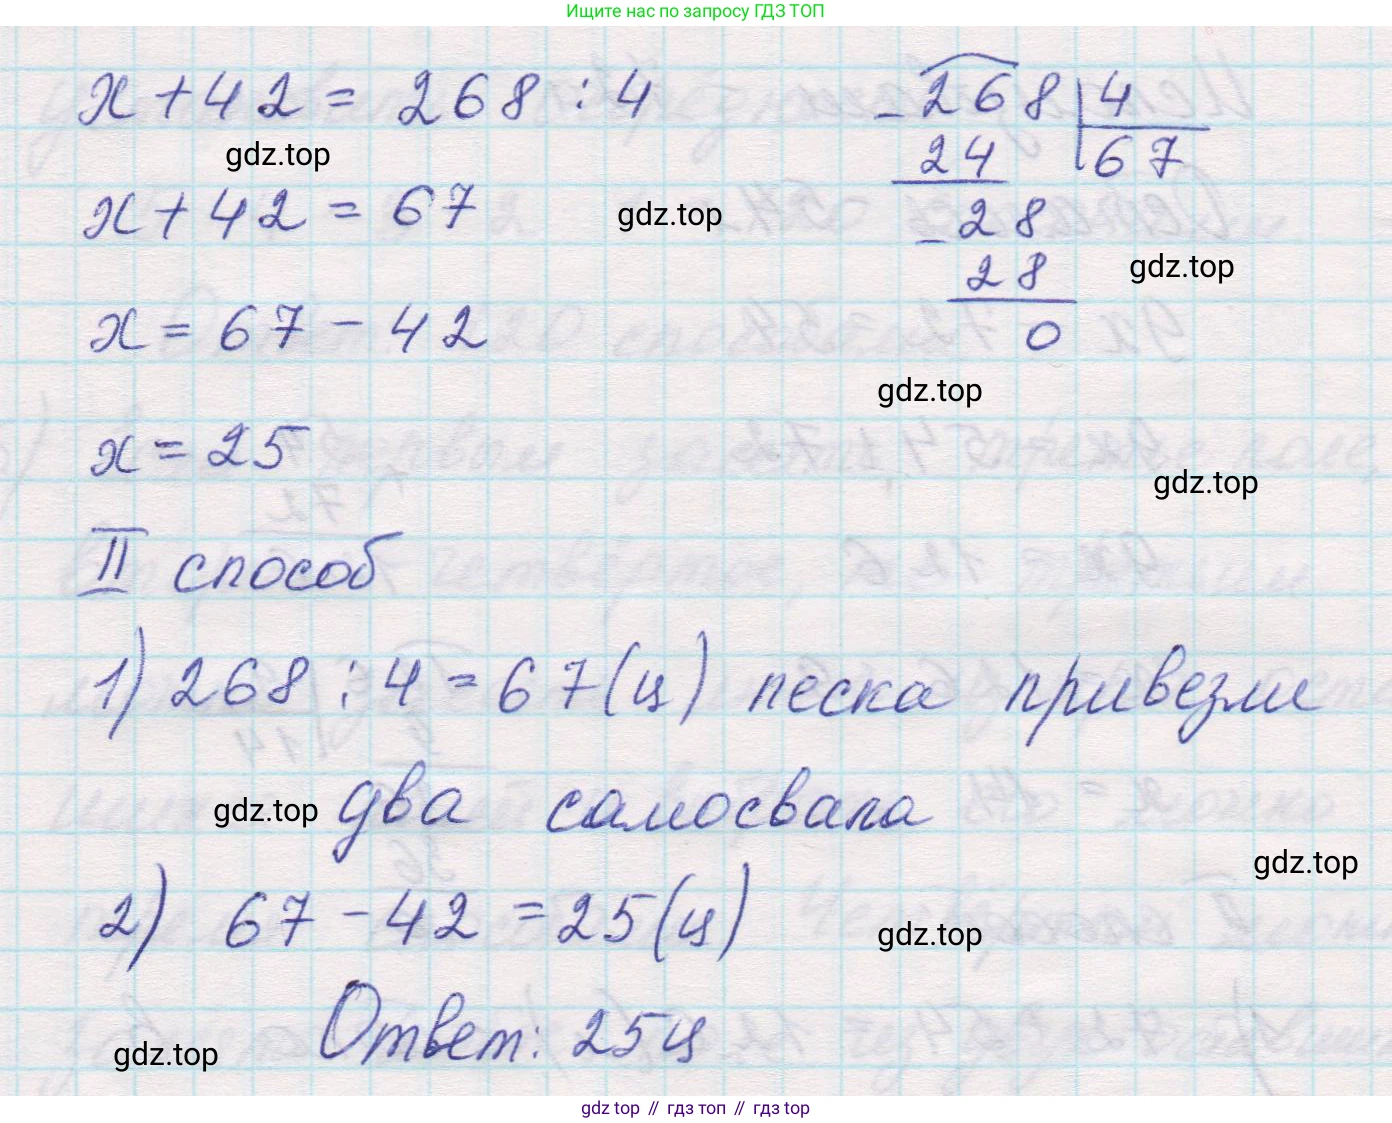 Ищите нас по запросу ГДЗ ТОП
x + 42 = 268 : 4
gdz.top
x + 42 = 67
gdz.top
x = 67 - 42
x = 25
- 268 | 4
24 67
- 28
28
gdz.top
0
gdz.top
gdz.top
II способ
1) 268 : 4 = 67 (ц) песка привезли
gdz.top два самосвала
gdz.top
2) 67 - 42 = 25 (ц)
gdz.top
Ответ: 25ц
gdz.top
gdz top // гдз топ // гдз top